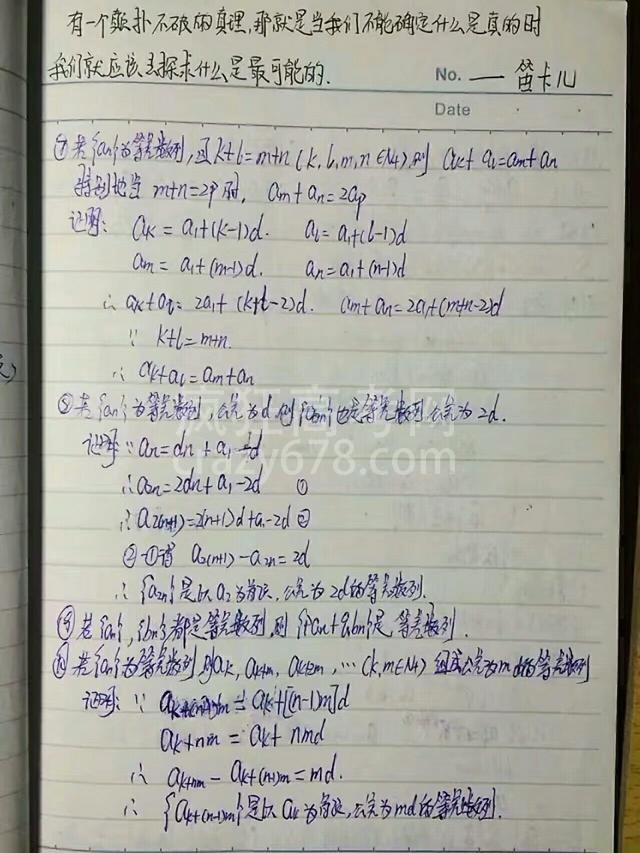 有一个颠扑不破的真理,那就是当我们不能确定什么是真的时
我们就应该去探求什么是最可能的.
No. —— 笛卡儿
Date
⑦若{an}为等差数列,且k+l=m+n(k,l,m,n∈N+),则 ak+al=am+an
特别地当 m+n=2p时, am+an=2ap
证明: ak=a1+(k-1)d. al=a1+(l-1)d
am=a1+(m-1)d. an=a1+(n-1)d
∴ak+al=2a1+(k+l-2)d. am+an=2a1+(m+n-2)d
∵ k+l=m+n.
∴ ak+al=am+an
⑧若{an}为等差数列,公差为d,则{a2n}也是等差数列公差为2d.
疯狂高考网
crazy678.com
证明:∵an=dn+a1-d
∴a2n=2dn+a1-2d ①
∴a2(n+1)=2(n+1)d+a1-2d ②
②-①得 a2(n+1)-a2n=2d
∴{a2n}是以a2为首项,公差为2d的等差数列.
⑨若{an},{bn}都是等差数列,则{pan+qbn}是等差数列.
⑩若{an}为等差数列,则ak,ak+m,ak+2m,…(k,m∈N+)组成公差为md的等差数列
证明:∵ ak+(n-1)m=ak+[(n-1)m]d
ak+nm=ak+nmd
∴ ak+nm-ak+(n-1)m=md.
∴ {ak+(n-1)m}是以ak为首项,公差为md的等差数列.